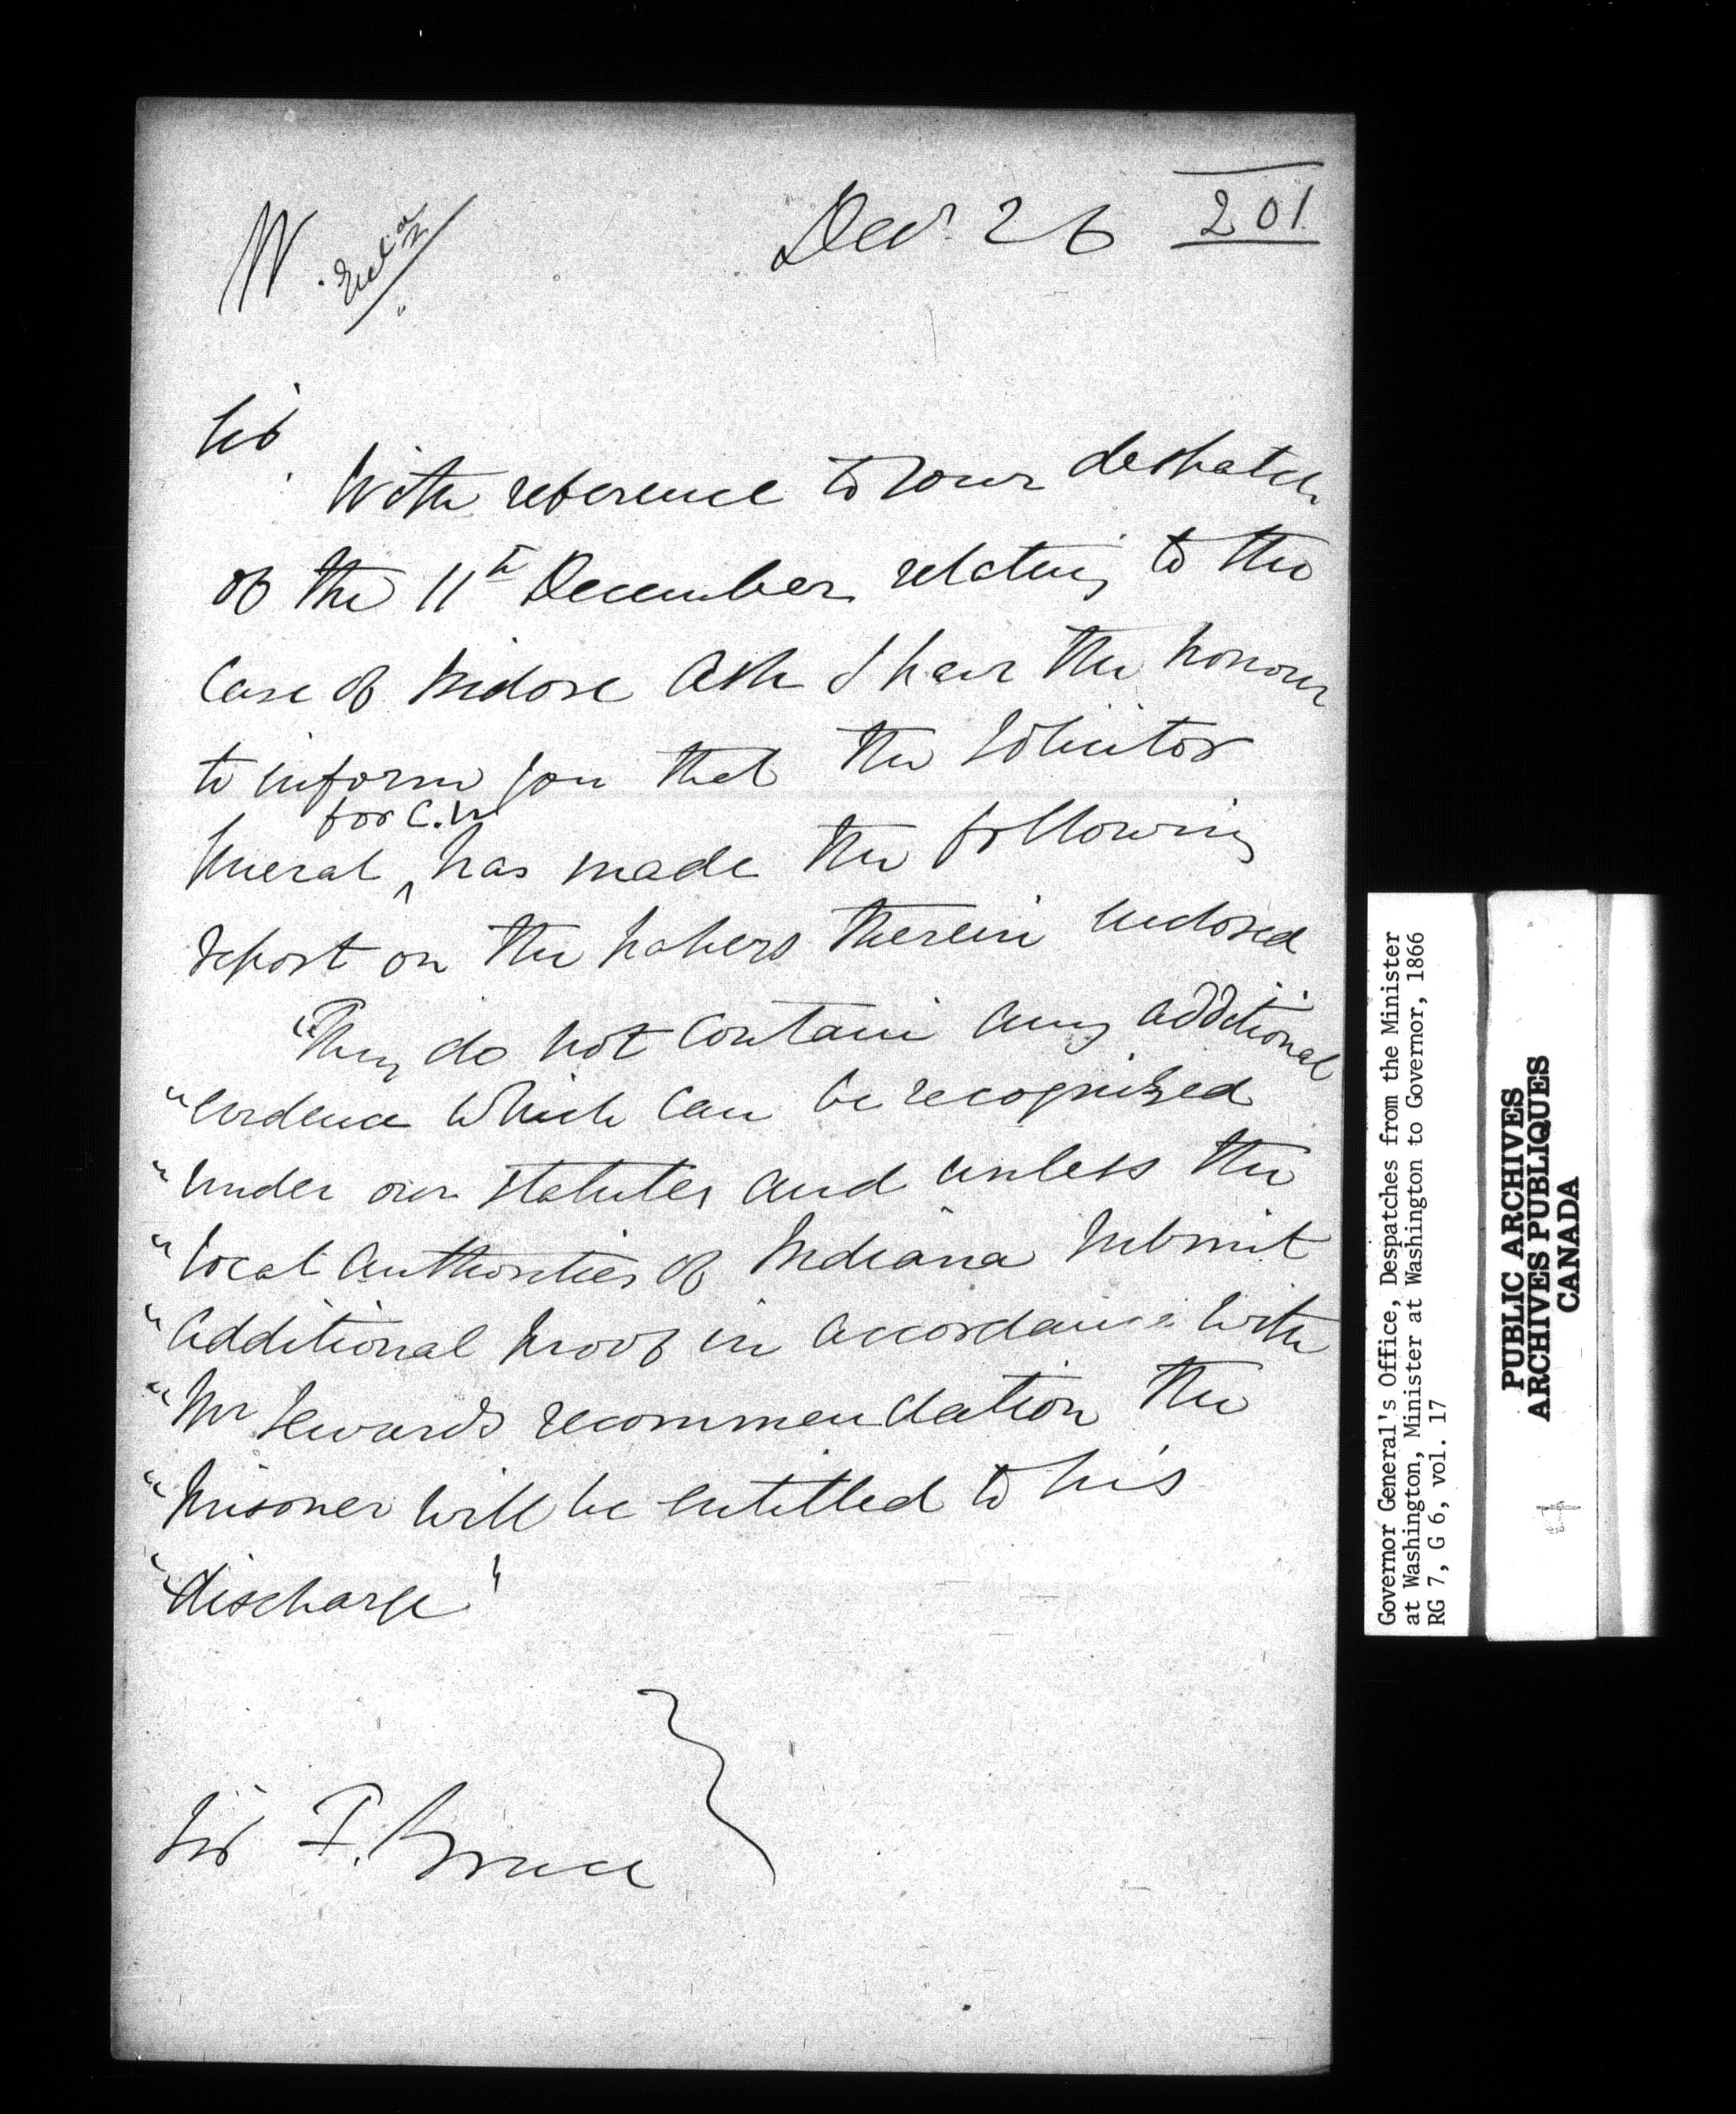 201
Decr. 26
W.
Sir
With reference to your despatch
of the 11th December relating to the
Case of Isidore Ash I have the honour
to inform you that the Solicitor
General for C.W. has made the following
report on the papers therein enclosed
"They do not contain any additional
"evidence which can be recognized
"under our statutes and unless the
"local authorities of Indiana submit
"additional proof in accordance with
"Mr Sewards recommendation the
"prisoner will be entitled to his
"discharge"
Sir F. Bruce
Governor General's Office, Despatches from the Minister
at Washington, Minister at Washington to Governor, 1866
RG 7, G 6, vol. 17
PUBLIC ARCHIVES
ARCHIVES PUBLIQUES
CANADA